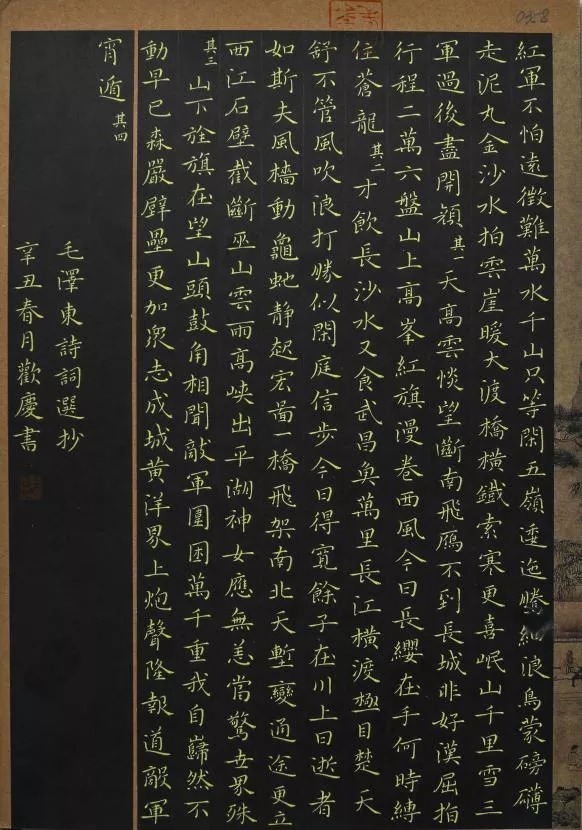 紅軍不怕遠徵難萬水千山只等閑五嶺逶迤騰細浪烏蒙磅礴
走泥丸金沙水拍雲崖暖大渡橋橫鐵索寒更喜岷山千里雪三
軍過後盡開顏其一天高雲惔望斷南飛鴈不到長城非好漢屈指
行程二萬六盤山上高峯紅旗漫卷西風今日長纓在手何時縛
住蒼龍其二才飲長沙水又食武昌魚萬里長江橫渡極目楚天
舒不管風吹浪打勝似閑庭信步今日得寬餘子在川上曰逝者
如斯夫風檣動龜虵靜起宏啚一橋飛架南北天塹變通途更立
西江石壁截斷巫山雲雨高峽出平湖神女應無恙當驚世界殊
其三山下旌旗在望山頭鼓角相聞敵軍圍困萬千重我自巋然不
動早已森嚴壁壘更加衆志成城黃洋界上炮聲隆報道敵軍
宵遁其四
毛澤東詩詞選抄
辛丑春月歡慶書